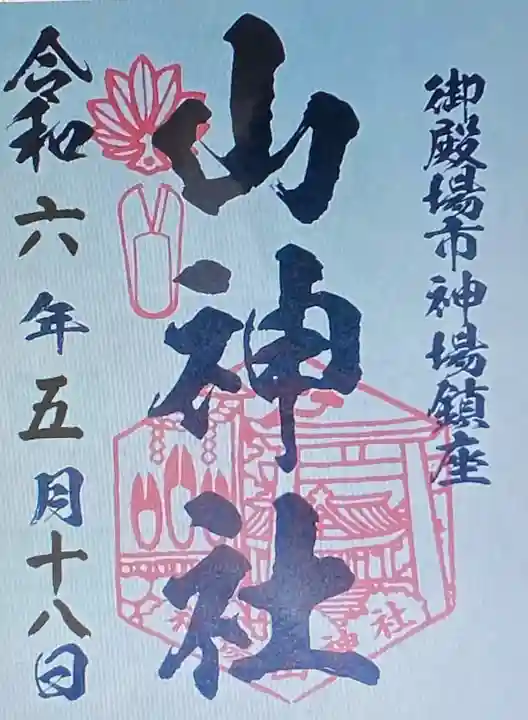 御殿場市神場鎮座
山神社
令和六年五月十八日